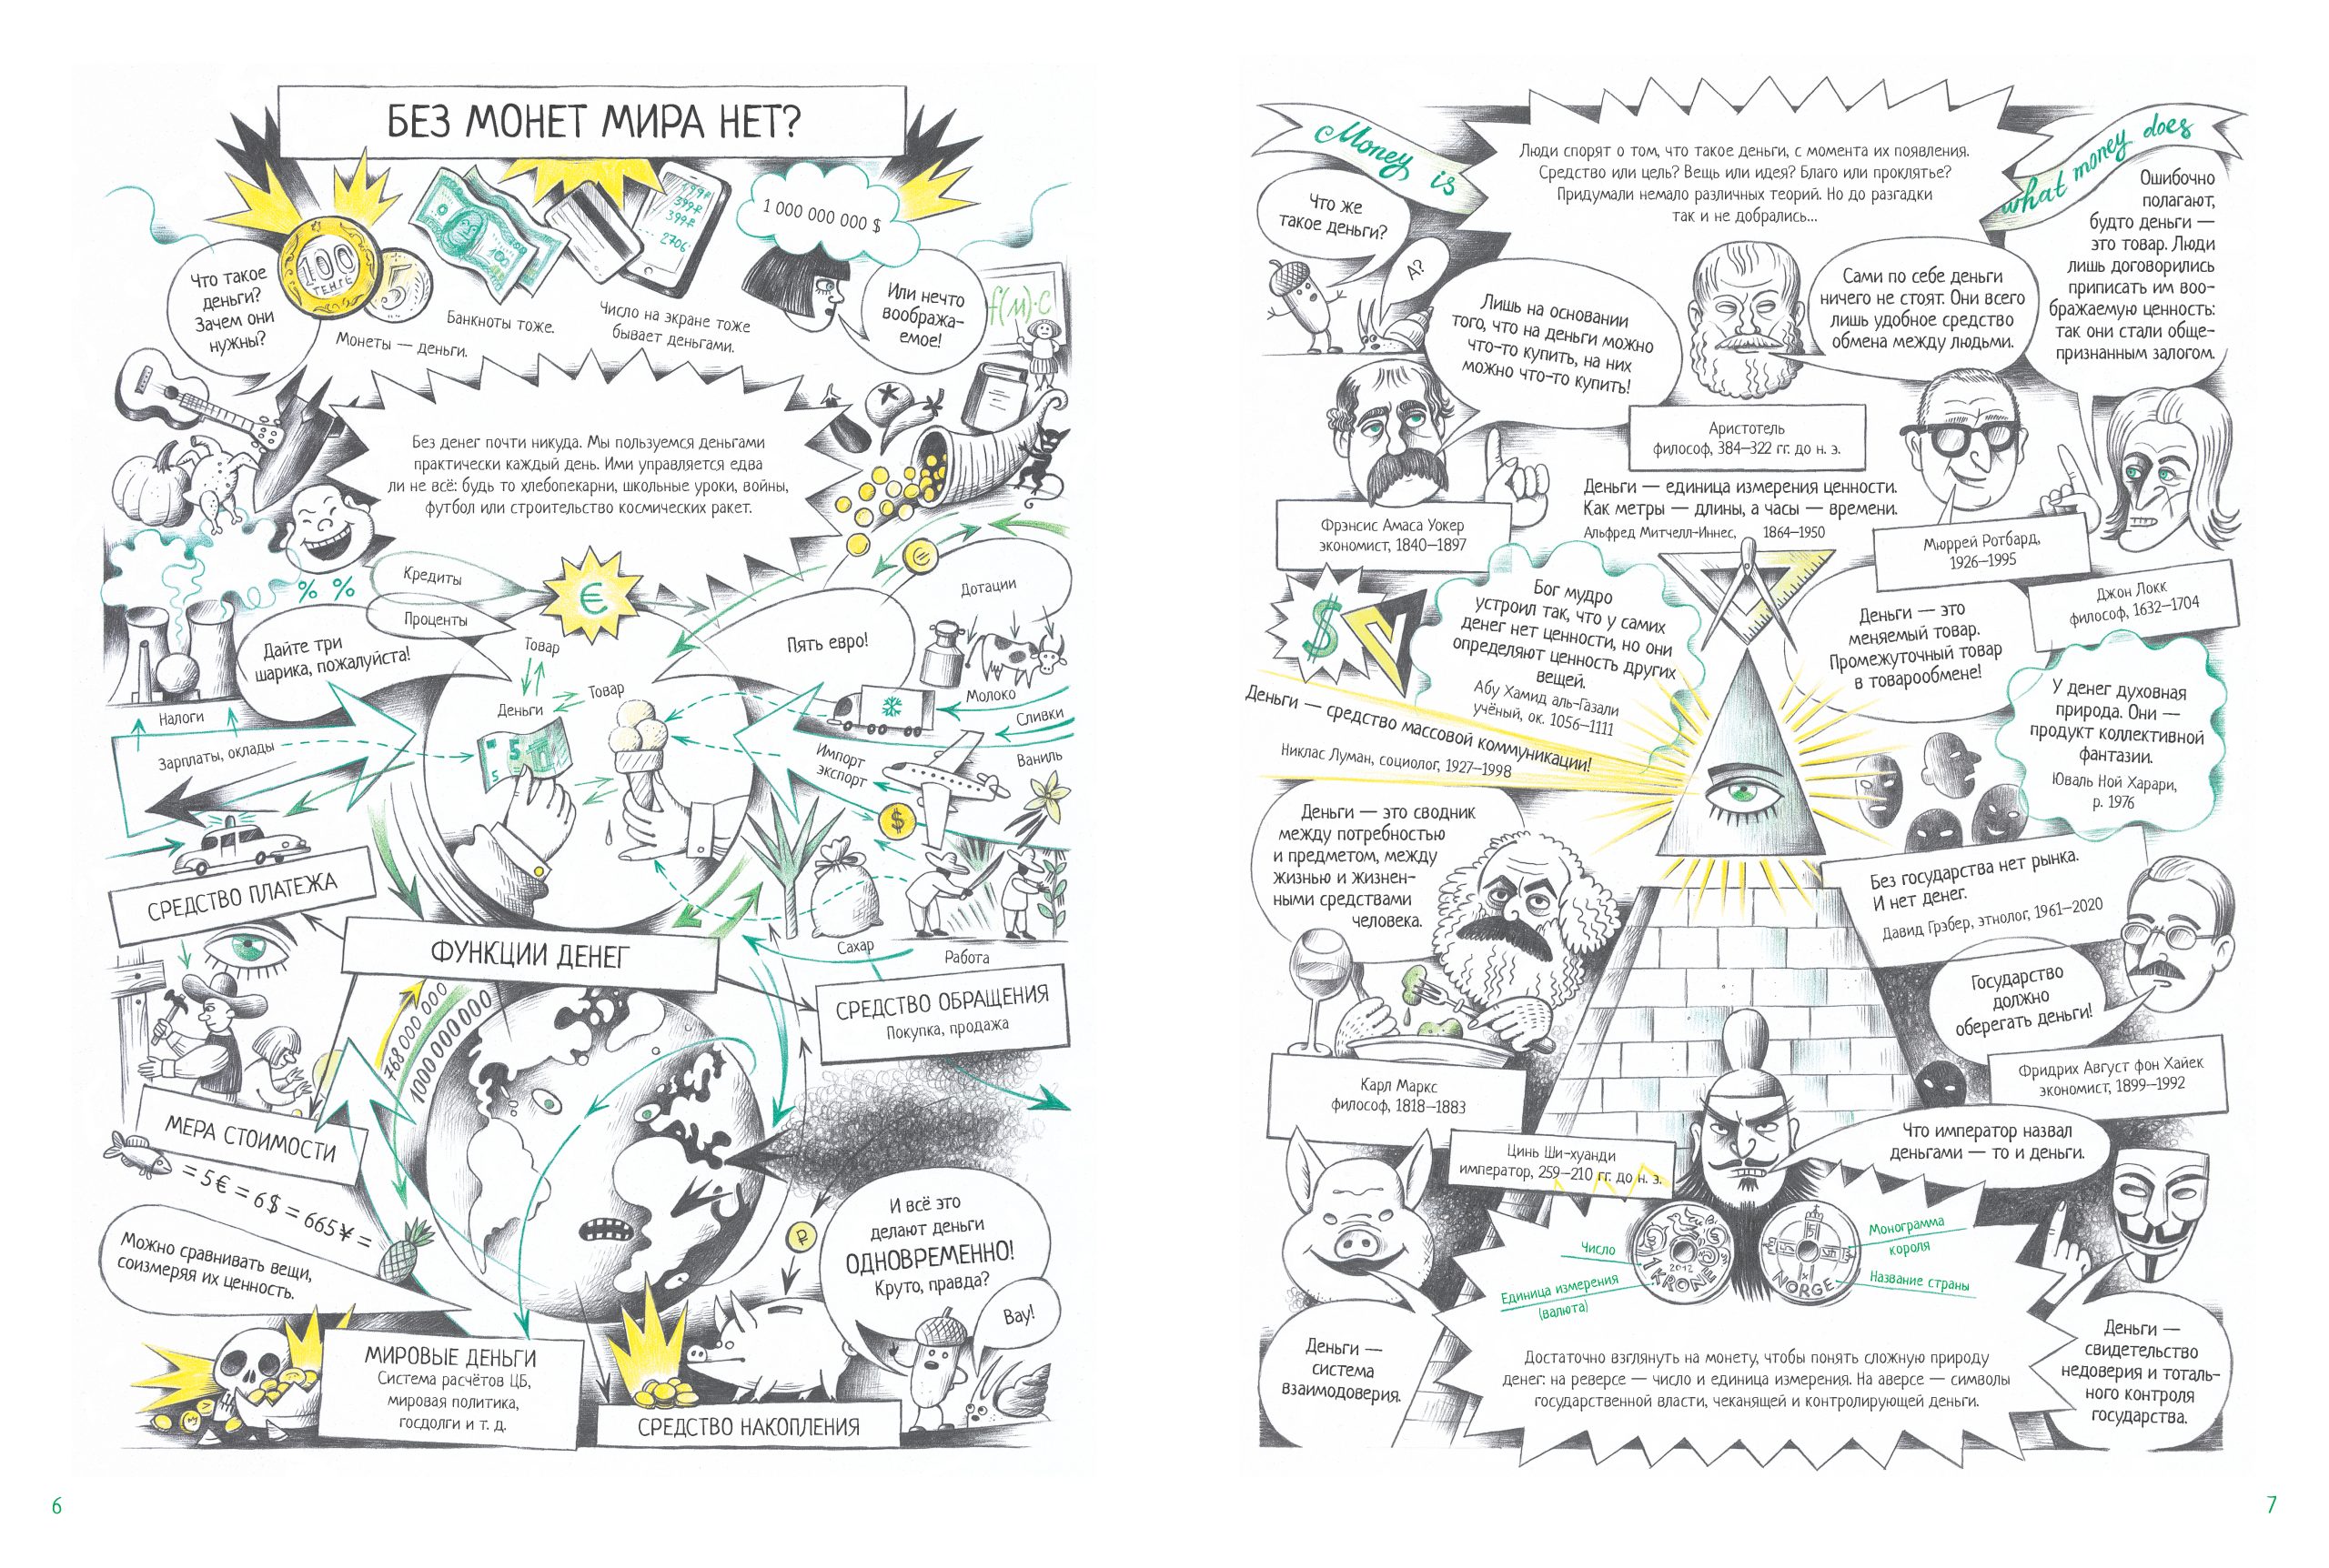 БЕЗ МОНЕТ МИРА НЕТ?
1 000 000 000 $
100
ТЕНГЕ
5
100
199₽
399₽
399₽
2706
f(м)·С
Что такое
деньги?
Зачем они
нужны?
Монеты — деньги.
Банкноты тоже.
Число на экране тоже
бывает деньгами.
Или нечто
вообража-
емое!
Без денег почти никуда. Мы пользуемся деньгами
практически каждый день. Ими управляется едва
ли не всё: будь то хлебопекарни, школьные уроки, войны,
футбол или строительство космических ракет.
% %
Кредиты
Проценты
€
€
Дотации
Дайте три
шарика, пожалуйста!
Пять евро!
Товар
Товар
Деньги
5
5
5
Молоко
Сливки
Ваниль
Импорт
экспорт
$
Налоги
Зарплаты, оклады
Сахар
Работа
СРЕДСТВО ПЛАТЕЖА
ФУНКЦИИ ДЕНЕГ
СРЕДСТВО ОБРАЩЕНИЯ
Покупка, продажа
768 000 000
1000 000 000
МЕРА СТОИМОСТИ
= 5€ = 6$ = 665¥ =
Можно сравнивать вещи,
соизмеряя их ценность.
₽
И всё это
делают деньги
ОДНОВРЕМЕННО!
Круто, правда?
Вау!
МИРОВЫЕ ДЕНЬГИ
Система расчётов ЦБ,
мировая политика,
госдолги и т. д.
СРЕДСТВО НАКОПЛЕНИЯ
6
Money is
what money does
Люди спорят о том, что такое деньги, с момента их появления.
Средство или цель? Вещь или идея? Благо или проклятье?
Придумали немало различных теорий. Но до разгадки
так и не добрались...
Что же
такое деньги?
А?
Лишь на основании
того, что на деньги можно
что-то купить, на них
можно что-то купить!
Фрэнсис Амаса Уокер
экономист, 1840–1897
Сами по себе деньги
ничего не стоят. Они всего
лишь удобное средство
обмена между людьми.
Аристотель
философ, 384–322 гг. до н. э.
Ошибочно
полагают,
будто деньги —
это товар. Люди
лишь договорились
приписать им воо-
бражаемую ценность:
так они стали обще-
признанным залогом.
Джон Локк
философ, 1632–1704
Деньги — единица измерения ценности.
Как метры — длины, а часы — времени.
Альфред Митчелл-Иннес, 1864–1950
Мюррей Ротбард,
1926–1995
Деньги — это
меняемый товар.
Промежуточный товар
в товарообмене!
$
Бог мудро
устроил так, что у самих
денег нет ценности, но они
определяют ценность других
вещей.
Абу Хамид аль-Газали
учёный, ок. 1056–1111
Деньги — средство массовой коммуникации!
Никлас Луман, социолог, 1927–1998
У денег духовная
природа. Они —
продукт коллективной
фантазии.
Юваль Ной Харари,
р. 1976
Деньги — это сводник
между потребностью
и предметом, между
жизнью и жизнен-
ными средствами
человека.
Карл Маркс
философ, 1818–1883
Без государства нет рынка.
И нет денег.
Давид Грэбер, этнолог, 1961–2020
Государство
должно
оберегать деньги!
Фридрих Август фон Хайек
экономист, 1899–1992
Цинь Ши-хуанди
император, 259–210 гг. до н. э.
Что император назвал
деньгами — то и деньги.
Число
Единица измерения
(валюта)
2012
1 KRONE
NORGE
Монограмма
короля
Название страны
Деньги —
система
взаимодоверия.
Достаточно взглянуть на монету, чтобы понять сложную природу
денег: на реверсе — число и единица измерения. На аверсе — символы
государственной власти, чеканящей и контролирующей деньги.
Деньги —
свидетельство
недоверия и тоталь-
ного контроля
государства.
7